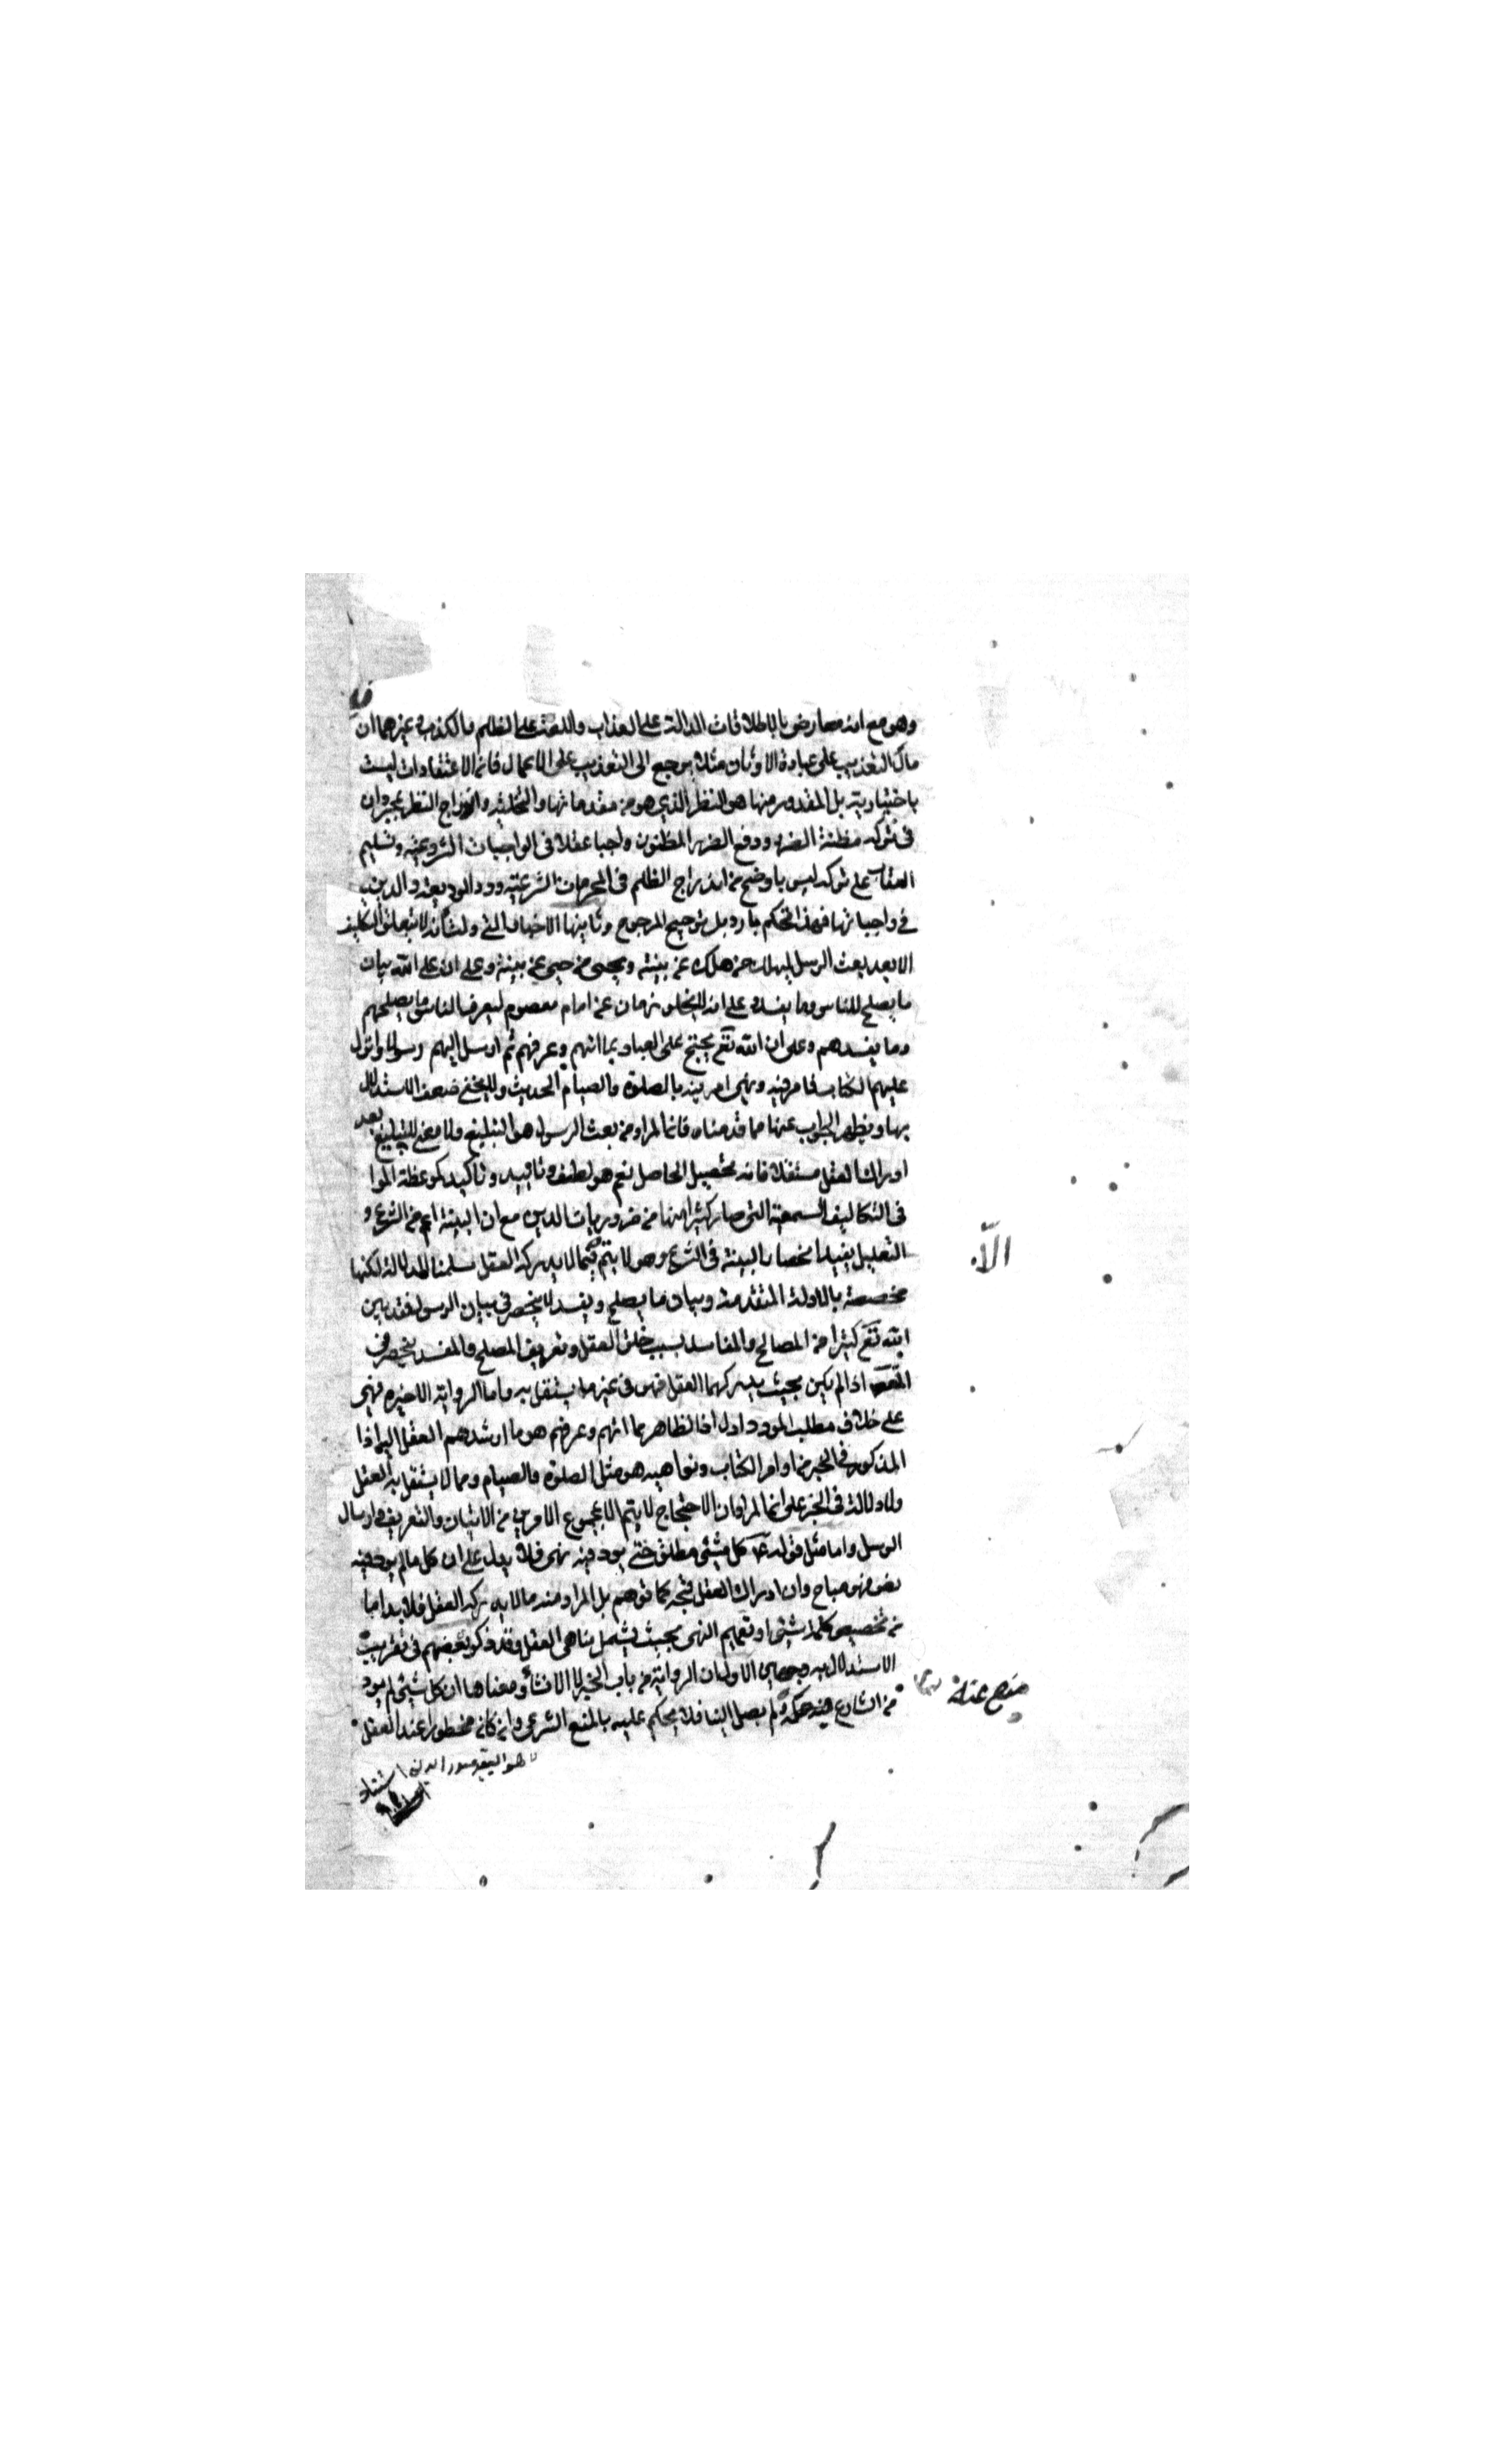 وهو مع انه معارض بالاطلاقات الدالة على العذاب واللعن على الظلم والكذب وغيرهما ان
مآل التعذيب على عبادة الاوثان مثلا يرجع الى التعذيب على الاعمال فان الاعتقادات ليست
باختيارية بل المقدور منها هو النظر الذي هو من مقدماتها والتخلية واندراج النظر بمجرد ان
في تركه مظنة الضرر ودفع الضرر المظنون واجبا عقلا في الواجبات الشرعية وتسليم
العقاب على تركه ليس باوضح من اندراج الظلم في المحرمات الشرعية وود الوديعة والدين
في واجباتها فهذا تحكم بارد بل ترجيح المرجوح وثانيها الاخبار التي دلت انه لا يتعلق التكليف
الا بعد بعث الرسل ليهلك من هلك عن بينة ويحيى من حي عن بينة وعلى ان على الله بيان
ما يصلح للناس وما يفسد وعلى انه لا يخلو زمان عن امام معصوم ليعرف الناس ما يصلحهم
وما يفسدهم وعلى ان الله تع يحتج على العباد بما اتيهم وعرفهم ثم ارسل اليهم رسولا وانزل
عليهم الكتاب فامر فيه ونهى امر فيه بالصلوة والصيام الحديث ولا يخفى ضعف الاستدلال
بها ويظهر الجواب عنها مما قدمناه فانما المراد من بعث الرسول هو التبليغ ولا معنى للتبليغ بعد
ادراك العقل مستقلا فانه تحصيل الحاصل نعم هو لطف وتاييد وتاكيد كموعظة الموا
في التكاليف السمعية التي صار كثير منها من ضروريات الدين مع ان البينة اعم من الشرع و
التعليل يفيد انحصار البينة في الشرع وهو لا يتم فيما لا يدركه العقل سلمنا الدلالة لكنها
الاّ
مخصصة بالادلة المتقدمة وبيان ما يصلح ويفسد لا ينحصر في بيان الرسول فقد بين
الله تع كثيرا من المصالح والمفاسد بسبب خلق العقل وتعريف المصلح والمفسد ينحصر في
اذا لم يكن بحيث يدركهما العقل فهي في غير ما يستقل به واما الرواية الاخيرة فهي
على خلاف مطلب المورد ادل اذ الظاهر مما اتيهم وعرفهم هو ما ارشدهم العقل اليه اذا
المذكور في الخبر من اوامر الكتاب ونواهيه هو مثل الصلوة والصيام ومما لا يستقل به العقل
ولا دلالة في الخبر على انما المراد ان الاحتجاج لا يتم الا بمجموع الامرين من الاتيان والتعريف وارسال
الرسل واما مثل قوله ع كل شيئ مطلق حتى يرد فيه نهى فلا يدل على ان كل ما لم يرد فيه
نص فهو مباح وان ادرك العقل قبحه كما توهم بل المراد منه ما لا يدركه العقل فلا بد اما
من تخصيص كلمة شيئ او تعميم النهى بحيث يشمل مناهى العقل وقد ذكر بعضهم في تقريب
الاستدلال به وجهين الاول ان الرواية من باب الخبر لا الانشاء ومعناها ان كل شيئ لم يرد
من الشارع فيه حكم ولم يصل الينا فلا يحكم عليه بالمنع الشرعي وان كان محظورا عند العقل
هو السيد صدر الدين